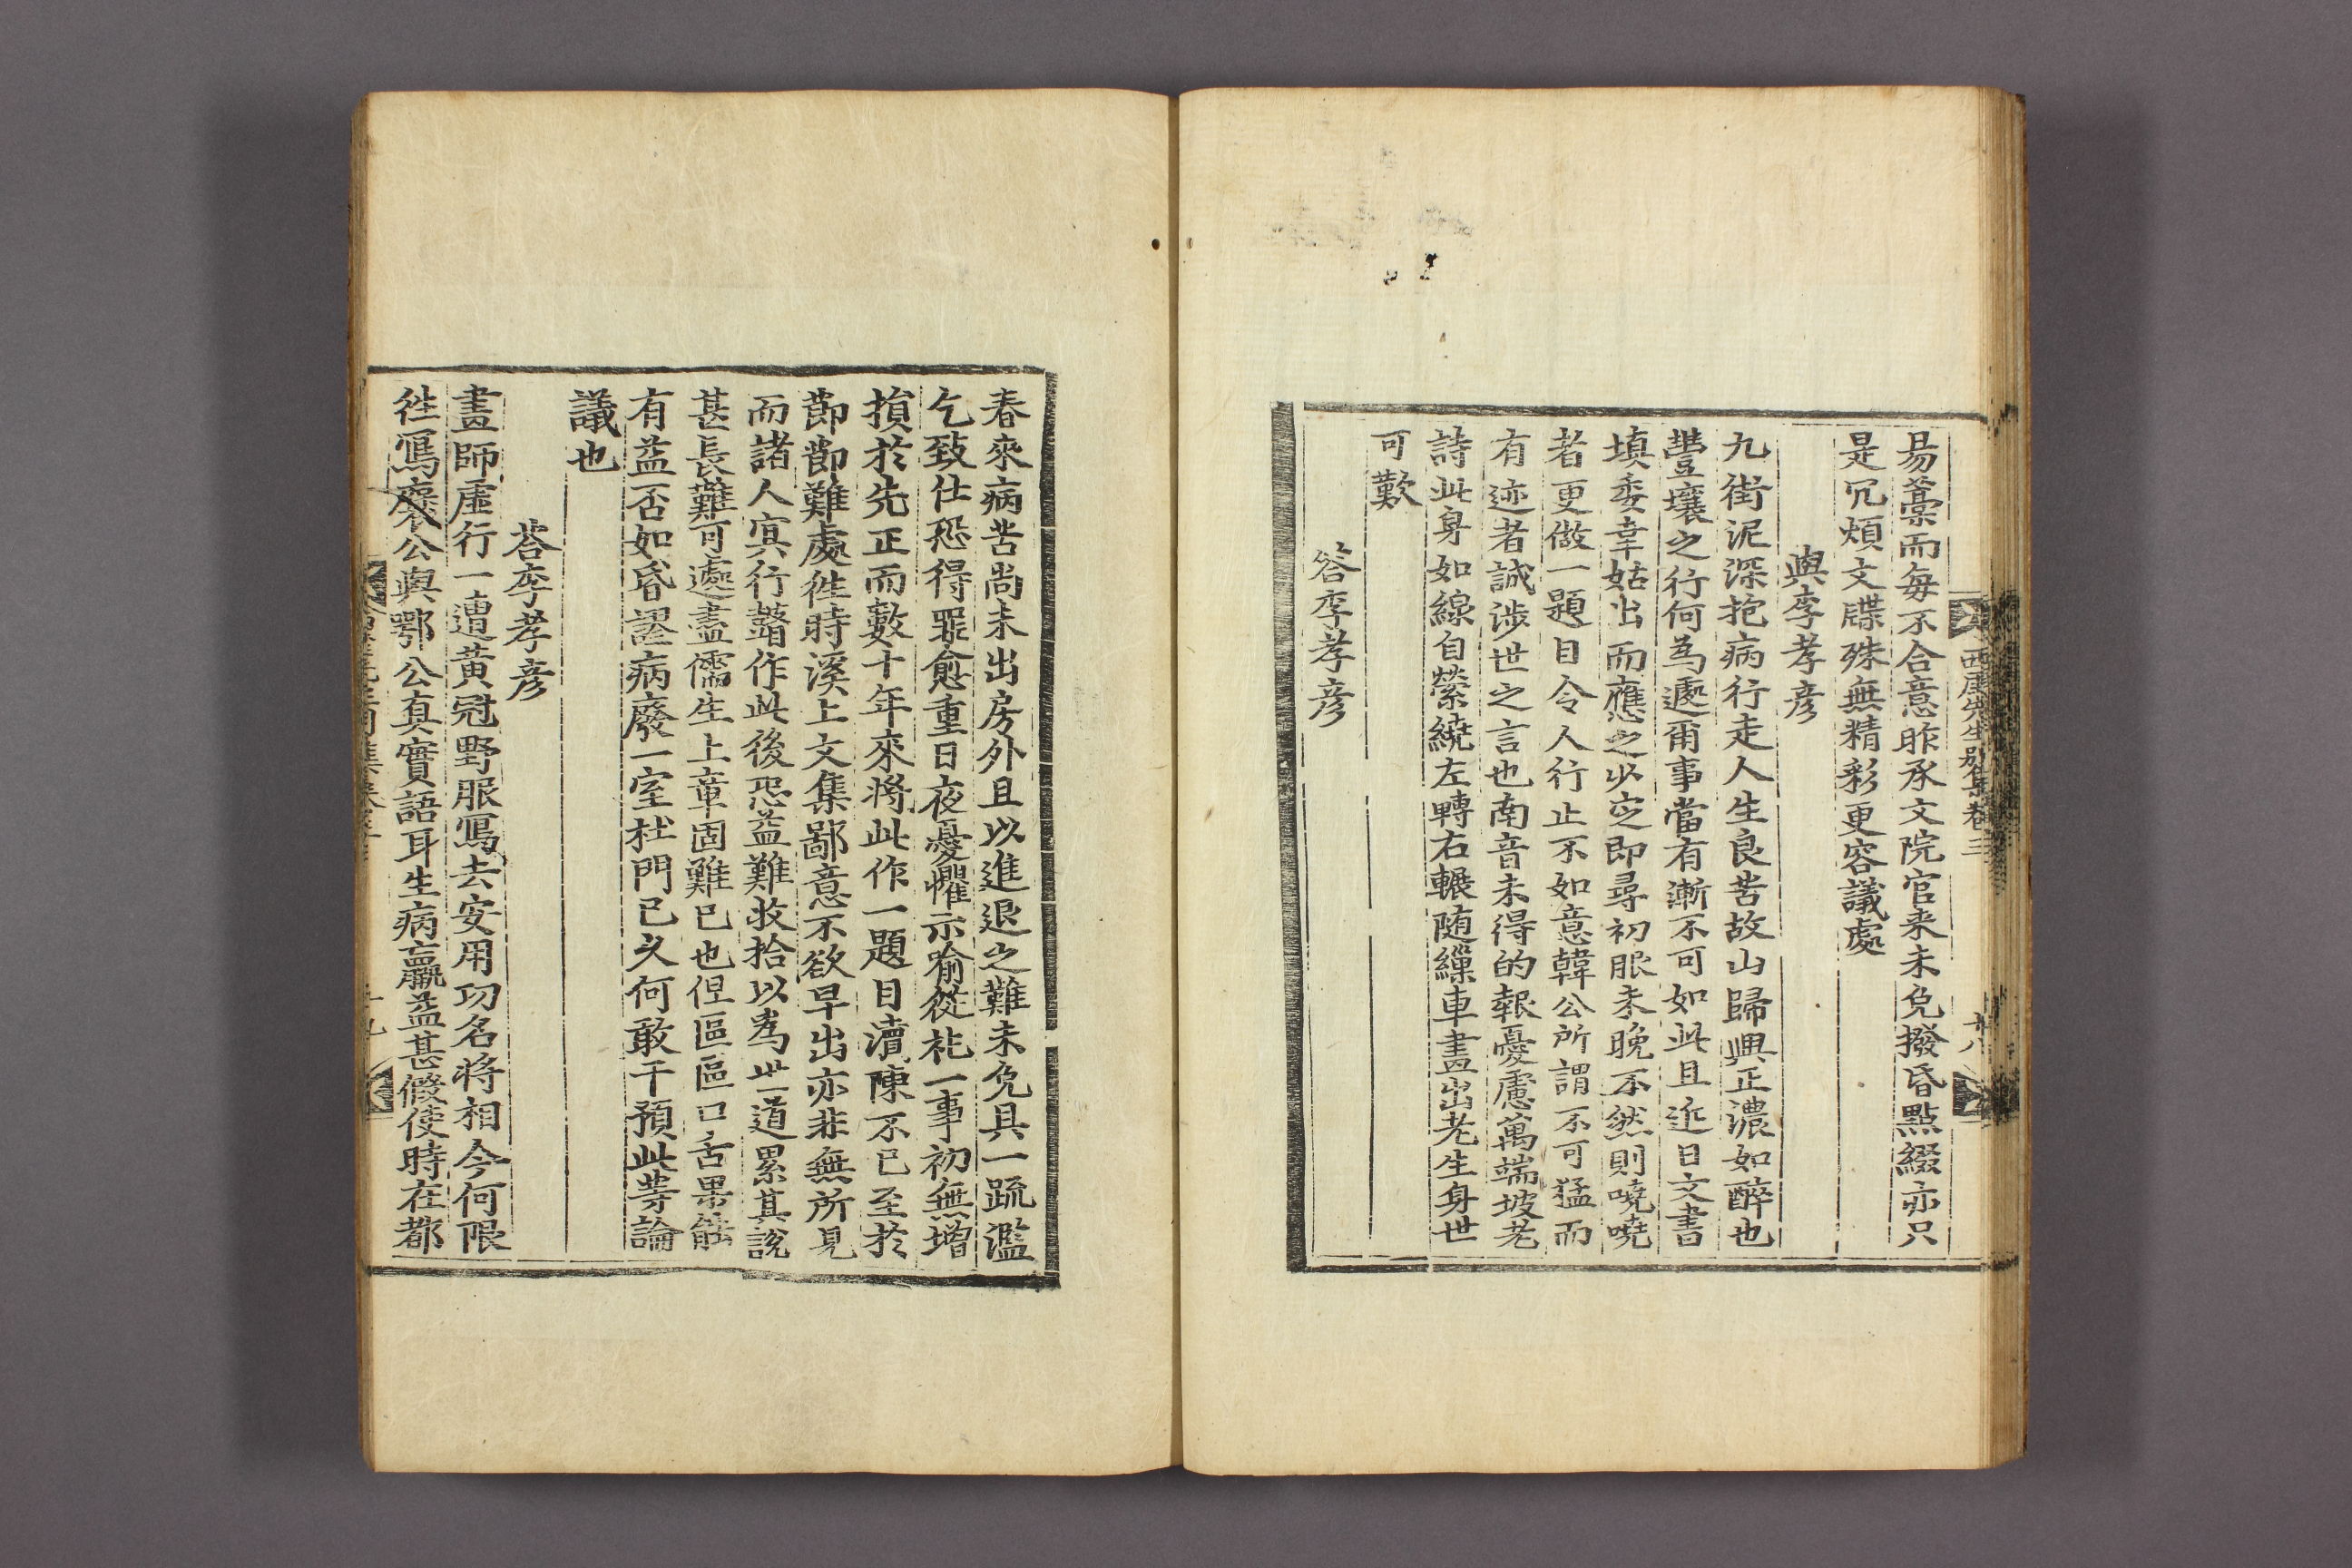 西厓先生別集卷三
廿八
易藁而每不合意昨承文院官来未免撥昏點綴亦只
是冗煩文牒殊無精彩更容議處
與李孝彦
九街泥深抱病行走人生良苦故山歸興正濃如醉也
豐壤之行何爲遽爾事當有漸不可如此且近日文書
填委幸姑出而應之少定即尋初服未晚不然則嘵嘵
者更做一題目令人行止不如意韓公所謂不可猛而
有迹者誠涉世之言也南音未得的報憂慮萬端坡老
詩此身如線自縈繞左轉右轉随繅車畫出老生身世
可歎
答李孝彦
春來病苦尚未出房外且以進退之難未免具一疏濫
乞致仕恐得罪愈重日夜憂懼示喩從祀一事初無增
損於先正而數十年來將此作一題目瀆陳不已至於
節節難處徃時溪上文集鄙意不欲早出亦非無所見
而諸人㝠行藞作此後恐益難收拾以爲此道累其說
甚長難可遽盡儒生上章固難已也但區區口舌果能
有益否如昏謬病廢一室杜門已久何敢干預此等論
議也
答李孝彦
畫師虛行一遭黃冠野服寫去安用功名將相今何限
徃寫襃公與鄂公真實語耳生病羸益甚假使時在都